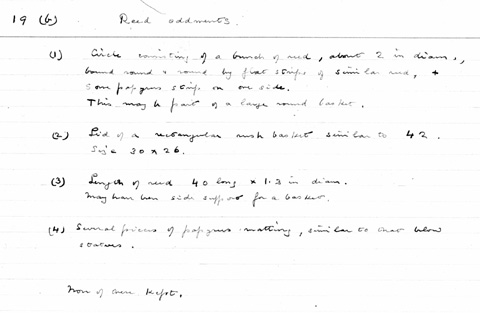 19 (b) Reed oddments.
(1) Circle consisting of a bunch of reed, about 2 in diam.,
bound round & round by flat strips of similar reed, +
some papyrus strip on one side.
This may be part of a large round basket.
(2) Lid of a rectangular rush basket similar to 42.
Size 30 × 26.
(3) Length of reed 40 long × 1.3 in diam.
May have been side support for a basket.
(4) Several pieces of papyrus matting, similar to that below
statues.
None of these kept.